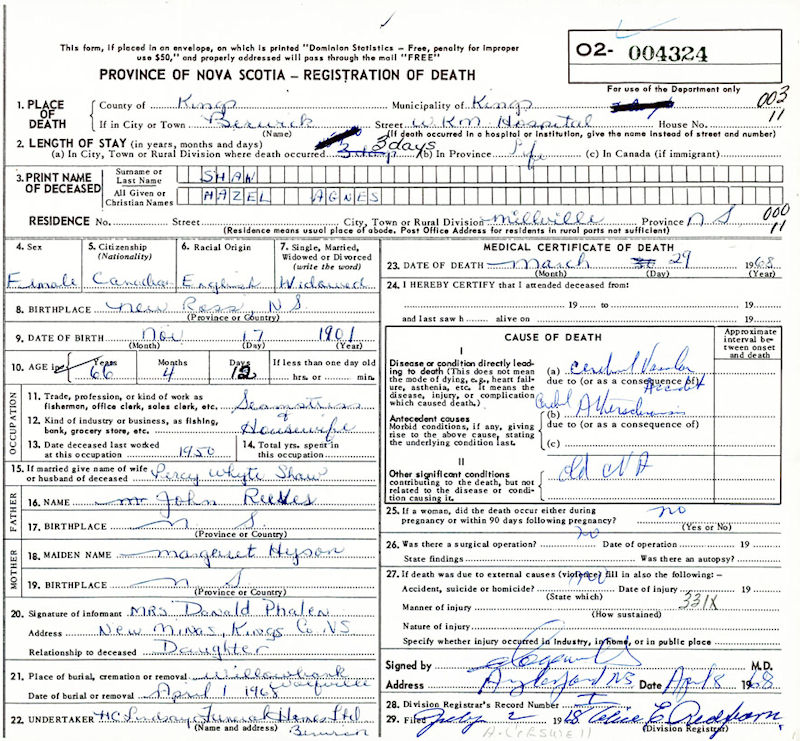 This form, if placed in an envelope, on which is printed "Dominion Statistics – Free, penalty for improper
use $50," and properly addressed will pass through the mail "FREE"
PROVINCE OF NOVA SCOTIA – REGISTRATION OF DEATH
O2- 004324
For use of the Department only
003
11
1. PLACE OF DEATH
County of Kings Municipality of Kings
If in City or Town Berwick Street WKM Hospital House No.
(Name) (If death occurred in a hospital or institution, give the name instead of street and number)
2. LENGTH OF STAY (in years, months and days)
(a) In City, Town or Rural Division where death occurred 3 days (b) In Province Life (c) In Canada (if immigrant)
3. PRINT NAME OF DECEASED
Surname or Last Name SHAW
All Given or Christian Names HAZEL AGNES
RESIDENCE No. Street City, Town or Rural Division Millville Province N S
000
11
(Residence means usual place of abode. Post Office Address for residents in rural parts not sufficient)
4. Sex Female
5. Citizenship (Nationality) Canadian
6. Racial Origin English
7. Single, Married, Widowed or Divorced (write the word) Widowed
8. BIRTHPLACE New Ross, NS
(Province or Country)
9. DATE OF BIRTH Nov 17 1901
(Month) (Day) (Year)
10. AGE in: Years 66 Months 4 Days 12 If less than one day old
hrs. or min.
OCCUPATION
11. Trade, profession, or kind of work as
fisherman, office clerk, sales clerk, etc. Seamstress
12. Kind of industry or business, as fishing,
bank, grocery store, etc. Housewife
13. Date deceased last worked
at this occupation 1950
14. Total yrs. spent in
this occupation
15. If married give name of wife
or husband of deceased Percy Whyte Shaw
FATHER
16. NAME Mr John Reeves
17. BIRTHPLACE N S.
(Province or Country)
MOTHER
18. MAIDEN NAME Margaret Hyson
19. BIRTHPLACE N S
(Province or Country)
20. Signature of informant MRS Donald Phalen
Address New Minas, Kings Co. NS
Relationship to deceased Daughter
21. Place of burial, cremation or removal Willowbank
Wolfville
Date of burial or removal April 1 1968
22. UNDERTAKER H.C. Lindsay Funeral Home Ltd
(Name and address) Berwick
MEDICAL CERTIFICATE OF DEATH
23. DATE OF DEATH March 29 1968
(Month) (Day) (Year)
24. I HEREBY CERTIFY that I attended deceased from:
19 to 19
and last saw h alive on 19
CAUSE OF DEATH
Approximate interval between onset and death
I
Disease or condition directly leading
to death (This does not mean
the mode of dying, e.g., heart failure,
asthenia, etc. It means the
disease, injury, or complication
which caused death.)
(a) Cerebral Vascular
due to (or as a consequence of)
Accident
Antecedent causes
Morbid conditions, if any, giving
rise to the above cause, stating
the underlying condition last.
(b) Atherosclerosis
due to (or as a consequence of)
(c)
II
Other significant conditions
contributing to the death, but not
related to the disease or condition
causing it.
Old CVA
25. If a woman, did the death occur either during
pregnancy or within 90 days following pregnancy? no
(Yes or No)
26. Was there a surgical operation? no Date of operation 19
State findings Was there an autopsy?
27. If death was due to external causes (violence) fill in also the following:–
Accident, suicide or homicide? Date of injury 19
(State which)
331X
Manner of injury
(How sustained)
Nature of injury
Specify whether injury occurred in industry, in home, or in public place
Signed by M.D.
Address Aylesford NS Date Apr 8 1968
28. Division Registrar's Record Number
29. Filed July 2 1968
(Division Registrar)